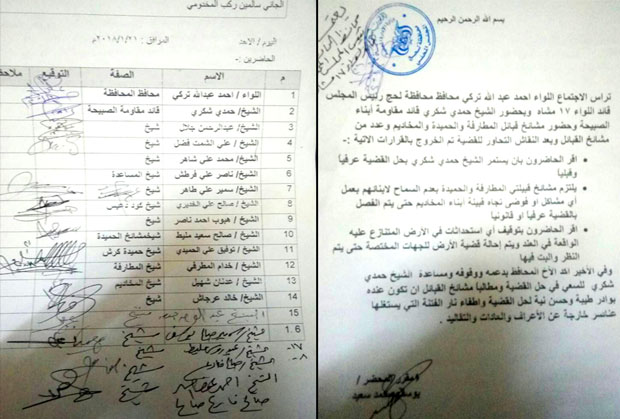 بسم الله الرحمن الرحيم
تراس الاجتماع اللواء احمد عبد الله تركي محافظ محافظة لحج رئيس المجلس
قائد اللواء ١٧ مشاه وبحضور الشيخ حمدي شكري قائد مقاومة أبناء
الصبيحة وحضور مشائخ قبائل المطارفة والحميدة والمخاديم وعدد من
مشائخ القبائل وبعد النقاش التحاور للقضية تم الخروج بالقرارات الاتية :-
اقر الحاضرون بان يستمر الشيخ حمدي شكري بحل القضية عرفياً
وقبلياً
يلتزم مشائخ قبيلتي المطارفة والحميدة بعدم السماح لابنائهم بعمل
أي مشاكل او فوضى تجاه قبيلة أبناء المخاديم حتى يتم الفصل
بالقضية عرفياً او قانونياً
اقر الحاضرون بتوقيف أي استحداثات في الارض المتنازع عليه
الواقعة في العند ويتم إحالة قضية الأرض للجهات المختصة حتى يتم
النظر والبت فيها
وفي الأخير اكد الأخ المحافظ بدعمه ووقوفه ومساعدة الشيخ حمدي
شكري للسعي في حل القضية ومطالبا مشائخ القبائل ان تكون عنده
بوادر طيبة وحسن نية لحل القضية واطفاء نار الفتنة التي يستغلها
عناصر خارجة عن الأعراف والعادات والتقاليد .
المحضر /
محمد سعيد
الجاني سالمين ركب المخدومي
اليوم / الاحد الموافق : ٢٠١٨/١/٢١م
الحاضرين:-
م الاسم الصفة التوقيع ملاحظ
1 اللواء / احمد عبدالله تركي محافظ المحافظة
2 الشيخ/ حمدي شكري قائد مقاومة الصبيحة
3 الشيخ / عبدالرحمن جلال شيخ
4 الشيخ / علي الشمت فضل شيخ
5 الشيخ / محمد علي شاهر شيخ
6 الشيخ / ناصر علي فرطش شيخ المساعدة
7 الشيخ / سمير علي طاهر شيخ
8 الشيخ / صالح علي الخديري شيخ كود دعيس
9 الشيخ / هيوب احمد ناصر شيخ
10 الشيخ / صالح سعيد مليط شيخ مشائخ الحميدة
11 الشيخ / توفيق علي الحميدي شيخ حميدة كرش
12 الشيخ / خدام المطرفي شيخ المطارفة
13 الشيخ / عدنان شهيل شيخ المخاديم
14 الشيخ/ خالد عرجاش شيخ
15
1.6 شيخ
١٧- شيخ
شيخ
الشيخ احمد شيخ